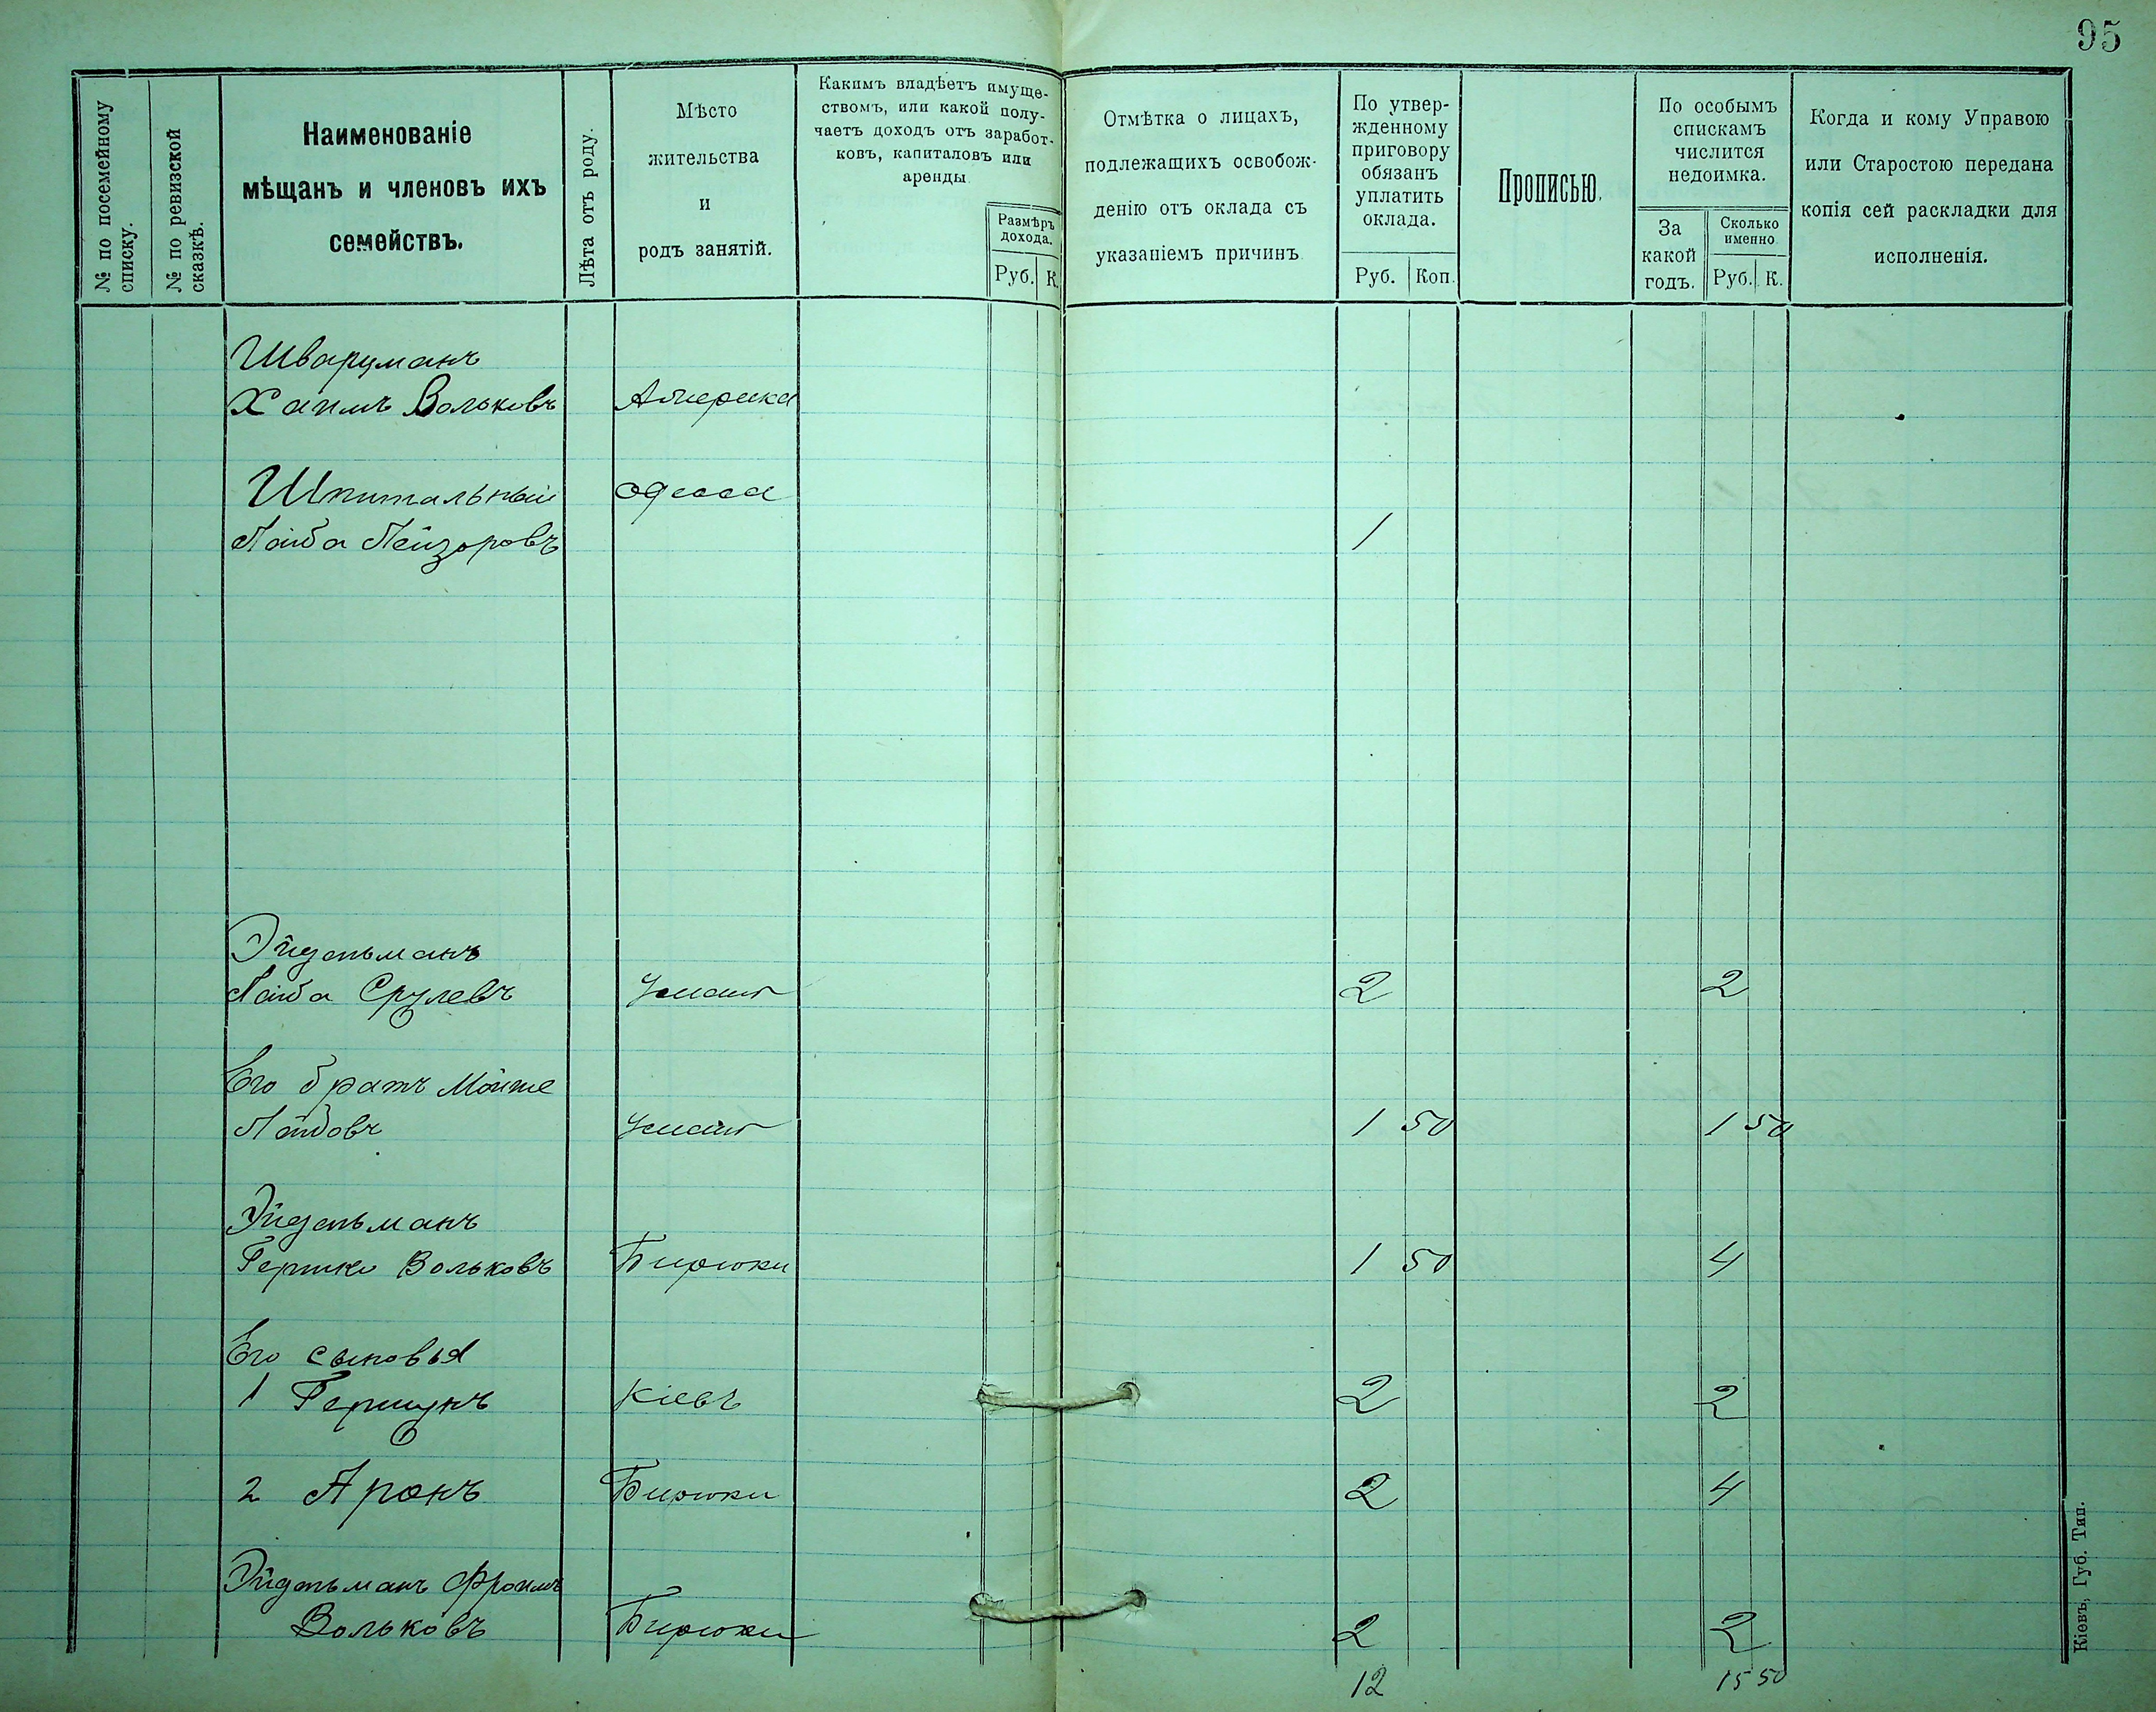 95
№ по посемейному
списку.
№ по ревизской
сказкѣ.
Наименованіе
мѣщанъ и членовъ ихъ
семействъ.
Лѣта отъ роду.
Мѣсто
жительства
и
родъ занятій.
Какимъ владѣетъ имуще-
ствомъ, или какой полу-
чаетъ доходъ отъ заработ-
ковъ, капиталовъ или
аренды.
Размѣръ
дохода.
Руб. К.
Отмѣтка о лицахъ,
подлежащихъ освобож-
денію отъ оклада съ
указаніемъ причинъ.
По утвер-
жденному
приговору
обязанъ
уплатить
оклада.
Руб. Коп.
Прописью.
По особымъ
спискамъ
числится
недоимка.
За
какой
годъ.
Сколько
именно
Руб. К.
Когда и кому Управою
или Старостою передана
копія сей раскладки для
исполненія.
Шварцманъ
Хаимъ Вольковъ Америка
Шпитальный Одесса
Лейба Лейзоровъ 1
Эйдельманъ
Лейба Срулевъ Умань 2 2
Его братъ Мойше
Лейбовъ Умань 1 50 1 50
Эйдельманъ
Гершко Вольковъ Бирюки 1 50 4
Его сыновья
1 Гершунъ Кіевъ 2 2
2 Аронъ Бирюки 2 4
Эйдельманъ Фроимъ
Вольковъ Бирюки 2 2
12 15 50
Кіевъ, Губ. Тип.